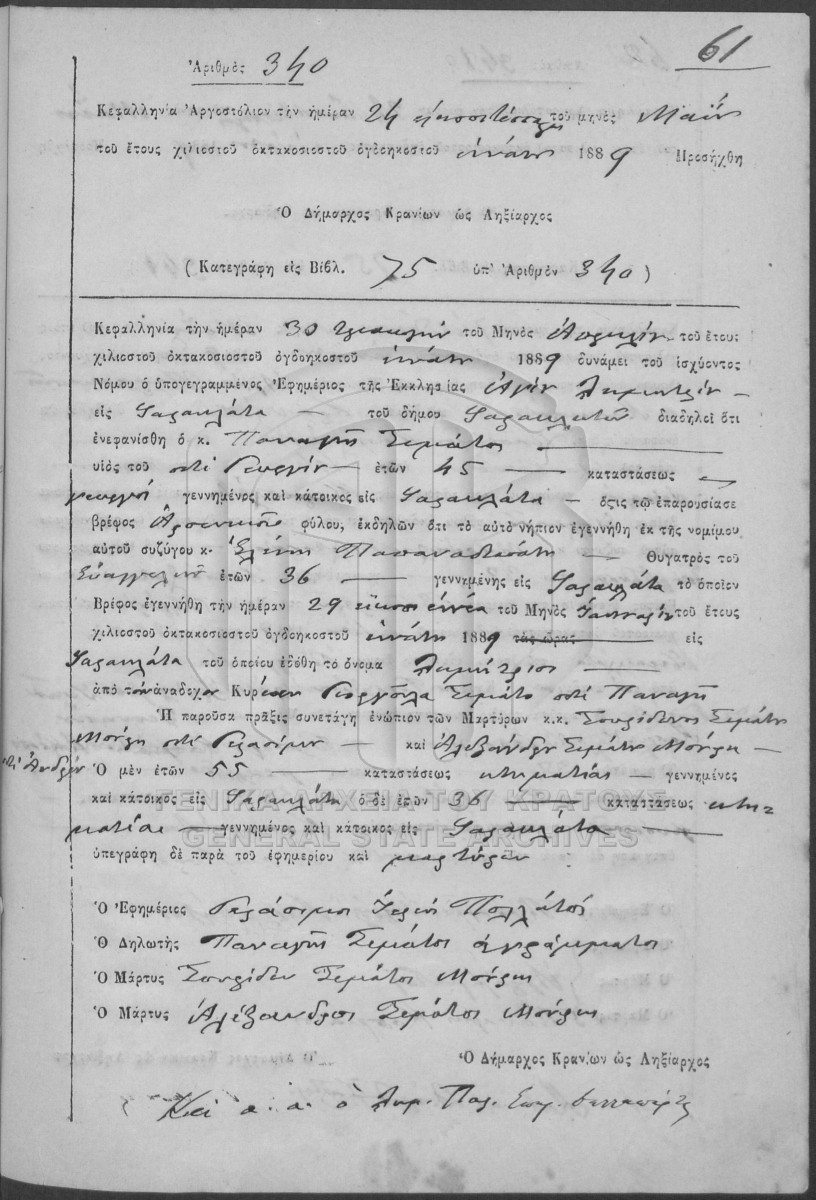 61
Ἀριθμὸς 340
Κεφαλληνία Ἀργοστόλιον τὴν ἡμέραν 24 εἰκοστὴ τοῦ μηνὸς Μαΐου
τοῦ ἔτους χιλιοστοῦ ὀκτακοσιοστοῦ ὀγδοηκοστοῦ ἐννάτου 1889 Προσήχθη
Ὁ Δήμαρχος Κρανίων ὡς Ληξίαρχος
( Κατεγράφη εἰς Βίβλ. 75 ὑπ' Ἀριθμὸν 340 )
Κεφαλληνία τὴν ἡμέραν 30 τριακοστὴν τοῦ Μηνὸς Ἀπριλίου τοῦ ἔτους
χιλιοστοῦ ὀκτακοσιοστοῦ ὀγδοηκοστοῦ ἐννάτου 1889 δυνάμει τοῦ ἰσχύοντος
Νόμου ὁ ὑπογεγραμμένος Ἐφημέριος τῆς Ἐκκλησίας Ἁγίου Δημητρίου
εἰς Φαρακλάτα τοῦ δήμου διαδηλοῖ ὅτι
ἐνεφανίσθη ὁ κ. Παναγῆς Σιμάτος
υἱὸς τοῦ ποτὲ Γεωργίου ἐτῶν 45 καταστάσεως
γεωργοῦ γεννημένος καὶ κάτοικος εἰς Φαρακλάτα ὅςτις τῷ ἐπαρουσίασε
βρέφος ἀρσενικοῦ φύλου, ἐκδηλῶν ὅτι τὸ αὐτὸ νήπιον ἐγεννήθη ἐκ τῆς νομίμου
αὐτοῦ συζύγου κ. Ἑλένης Θυγατρὸς τοῦ
Εὐαγγελινοῦ ἐτῶν 36 γεννημένης εἰς Φαρακλάτα τὸ ὁποῖον
Βρέφος ἐγεννήθη τὴν ἡμέραν 29 εἴκοσι ἐννέα τοῦ Μηνὸς Ἰανουαρίου τοῦ ἔτους
χιλιοστοῦ ὀκτακοσιοστοῦ ὀγδοηκοστοῦ ἐννάτου 1889 τὰς ὥρας εἰς
Φαρακλάτα τοῦ ὁποίου ἐδόθη τὸ ὄνομα Δημήτριος
ἀπὸ τὸν ἀνάδοχον Κυρίαν Γεωργούλα Σιμάτου ποτὲ Παναγῆ
Ἡ παροῦσα πρᾶξις συνετάγη ἐνώπιον τῶν Μαρτύρων κ.κ. Σπυρίδωνος Σιμάτου
Μούρκη ποτὲ Γερασίμου καὶ Ἀλεξάνδρου Σιμάτου Μούρκη
ποτὲ Ἀνδρέου
Ὁ μὲν ἐτῶν 55 καταστάσεως κτηματίας γεννημένος
καὶ κάτοικος εἰς Φαρακλάτα ὁ δὲ ἐτῶν 36 καταστάσεως κτη-
ματίας γεννημένος καὶ κάτοικος εἰς Φαρακλάτα
ὑπεγράφη δὲ παρὰ τοῦ ἐφημερίου καὶ μαρτύρων
ΓΕΝΙΚΑ ΑΡΧΕΙΑ ΤΟΥ ΚΡΑΤΟΥΣ
GENERAL STATE ARCHIVES
Ὁ Ἐφημέριος Γεράσιμος Ἱερεὺς Πολλάτος
Ὁ Δηλωτὴς Παναγῆς Σιμάτος ἀγράμματος
Ὁ Μάρτυς Σπυρίδων Σιμάτος Μούρκης
Ὁ Μάρτυς Ἀλέξανδρος Σιμάτος Μούρκης
Ὁ Δήμαρχος Κρανίων ὡς Ληξίαρχος
α. α. ὁ Δημ. Παρ.